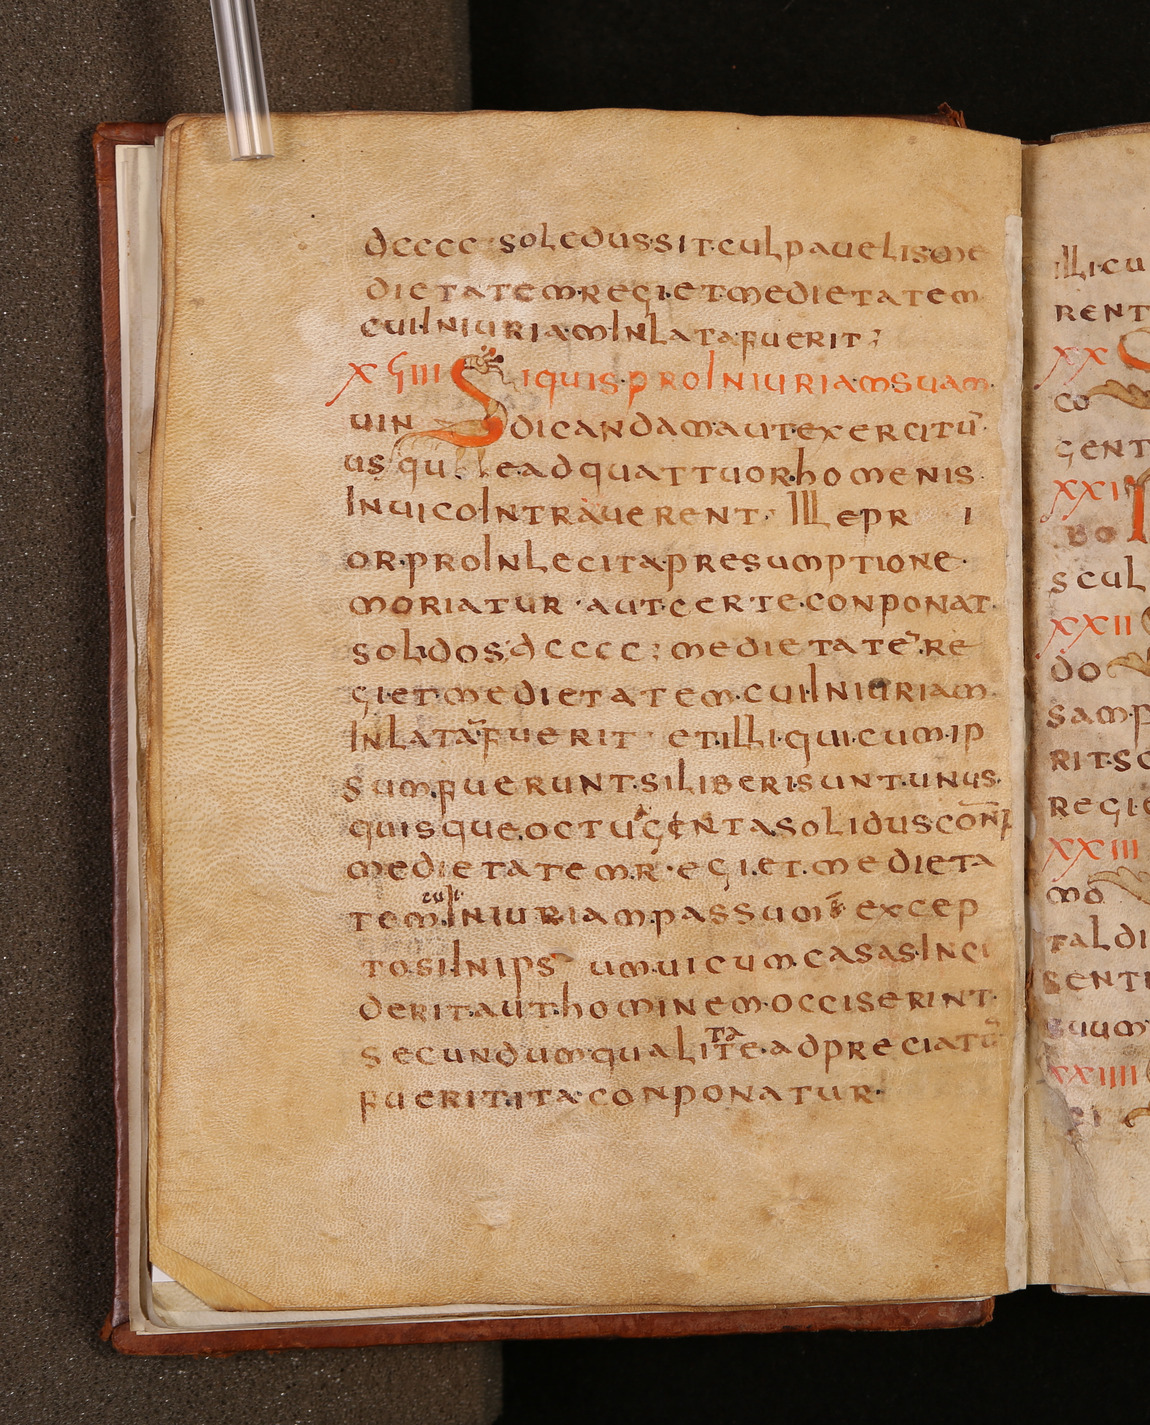 dcccc soledus sit culpauelis me
dietatem regi et medietatem
cui iniuriam inlata fuerit;
XVIIII Si quis pro iniuriam suam
uindicandam aut exercitū
usque ad quattuor homenis
in uico intrauerent ille pr i
or pro inlecita presumptione
moriatur aut certe conponat
solidos dcccc; medietatē re
gi et medietatem cui iniuriam
inlatā fuerit et illi qui cum ip
sum fuerunt si liberi sunt unus
quisque octugenta solidus conp
medietatem regi et medieta
tem cui iniuriam passum ē excep
to si in ips um uicum casas inci
derit aut hominem occiserint
secundum qualitate adpreciatū
fuerit ita conponatur
illi cu
rent
XX S
co
gent
XXI
bo
scul
XXII
do
sam p
rit sc
regi e
XXIII
mo
tal di
senti
suum
XXIIII